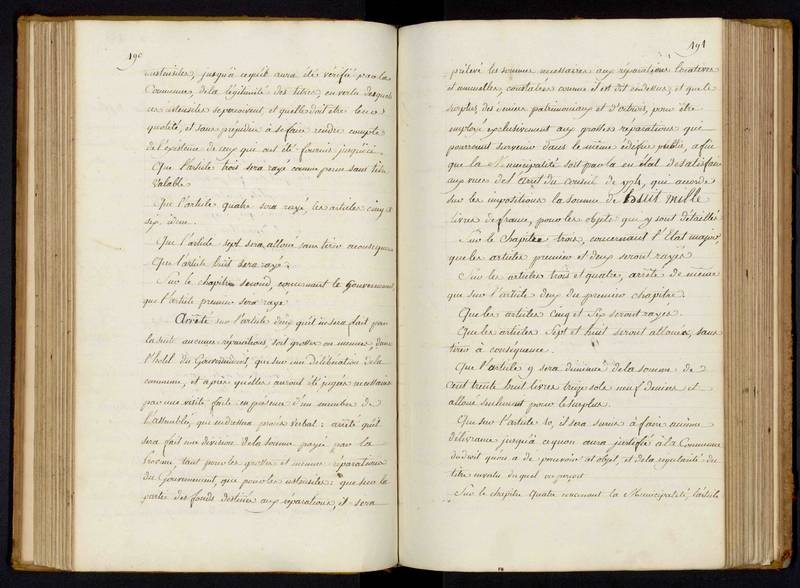 190
ustensiles, jusqu'à ce qu'il aura été vérifié par la
Commune, de la légitimité des titres, en vertu desquels
ces ustensiles se perçoivent, et quelle doit être leur
qualité, et sans préjudice à se faire rendre compte
de l'existence de ceux qui ont été fournis jusqu'ici
Que l'article trois sera rayé comme pris sans titre
Valable
Que l'article quatre sera rayé, les articles cinq
six idem.
Que l'article sept sera alloué sans tirer à conséquence
Que l'article huit sera rayé.
Sur le chapitre second, concernant le Gouvernement,
que l'article premier sera rayé
Arrêté sur l'article deux qu'il ne sera fait par
la suite aucunes réparations, soit grosses ou menues, dans
l'hôtel du Gouvernement, que sur une délibération de la
commune, et après qu'elles auront été jugées nécessaires
par une visite faite en présence d'un membre de
l'assemblée, qui en dressera procès verbal: arrêté qu'il
sera fait une division de la somme payée par la
Province, tant pour les grosses et menues réparations
du Gouvernement, que pour les ustensiles: que sur la
partie des fonds destinée aux réparations, il sera
191
prélevé les sommes nécessaires aux réparations locatives
et annuelles, constatées comme il est dit cy dessus, et que le
surplus des deniers patrimoniaux et d'octrois, pour être
employé exclusivement aux grosses réparations qui
pourront survenir dans le même édifice public, afin
que la Municipalité soit par là en état de satisfaire
aux vues de l'arrêt du conseil de 1774, qui accorde
sur les impositions la somme de huit mille
livres de france, pour les objets qui y sont détaillés
Sur le chapitre trois, concernant l'Etat major,
que les articles premier et deux seront rayés
Sur les articles trois et quatre, arrête de même
que sur l'article deux du premier chapitre.
Que les articles Cinq et Six seront rayés.
Que les articles Sept et huit seront alloués, sans
tirer à conséquence.
Que l'article 9 sera diminué de la somme de
Cent trente huit livres treize sols neuf deniers et
alloué seulement pour le surplus.
Que sur l'article 10, il sera sursis à faire aucune
délivrance jusqu'à ce qu'on aura justifié à la Commune
du droit qu'on a de pourvoir à cet objet, et de la régularité du
titre en vertu duquel on perçoit
Sur le chapitre Quatre concernant la Municipalité, l'article